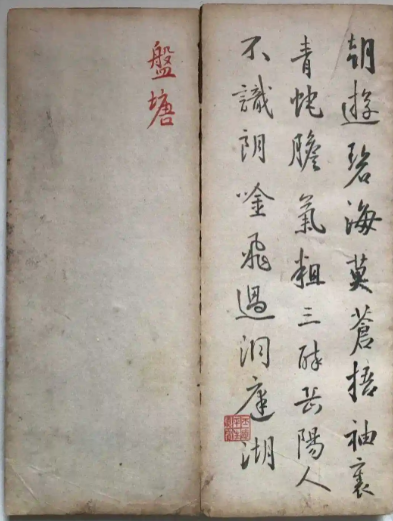 朝遊碧海莫蒼梧袖裏
青蛇膽氣粗三酔岳陽人
不識朗唫飛過洞庭湖
盤塘